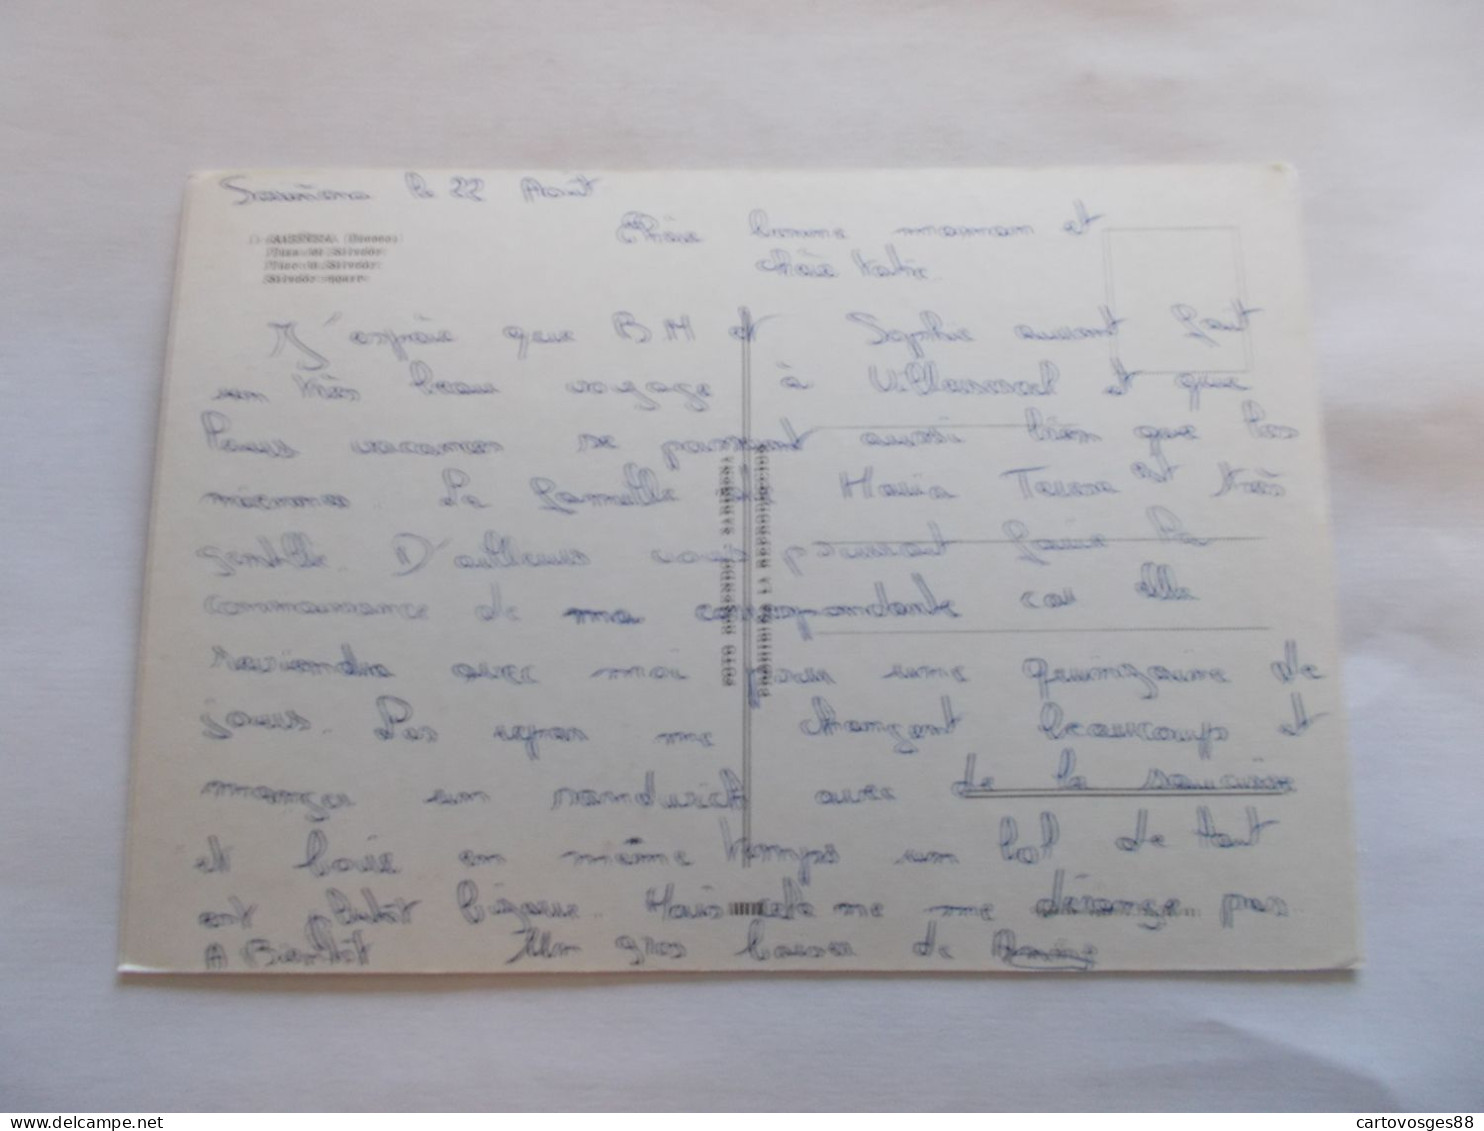 Sariñena le 22 Août
SARIÑENA (Huesca)
Plaza del Salvador
Place du Salvador
Salvador square
Chère bonne maman et
chère Katie
J'espère que B.M et Sophie auront fait
un très beau voyage à Villassecret et que
leurs vacances se passent aussi bien que les
miennes. La famille de Maria Teresa est très
gentille. D'ailleurs vous pourrait faire la
connaissance de ma correspondante car elle
reviendra avec moi pour une quinzaine de
jours. Les repas me changent beaucoup et
manger un sandwich avec de la saucisse
et boire en même temps un bol de lait
est plutôt bizarre. Mais cela ne me dérange pas
A Bientôt Un gros baiser de
cartovosges88